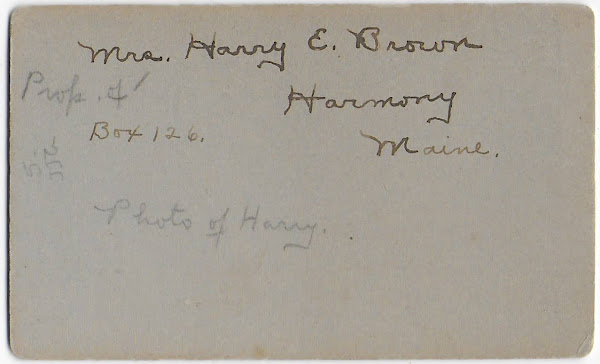 Mrs. Harry E. Brown
Prop. of
Harmony
Box 126.
Maine.
Photo of Harry.